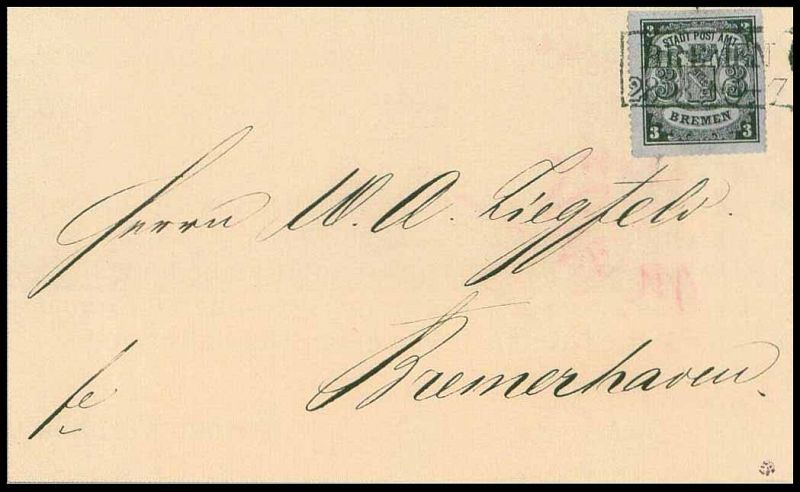 3 STADT POST AMT 3
BREMEN
3 3
7
BREMEN
3 3
Herrn W. A. Ziegfeld.
Bremerhaven.